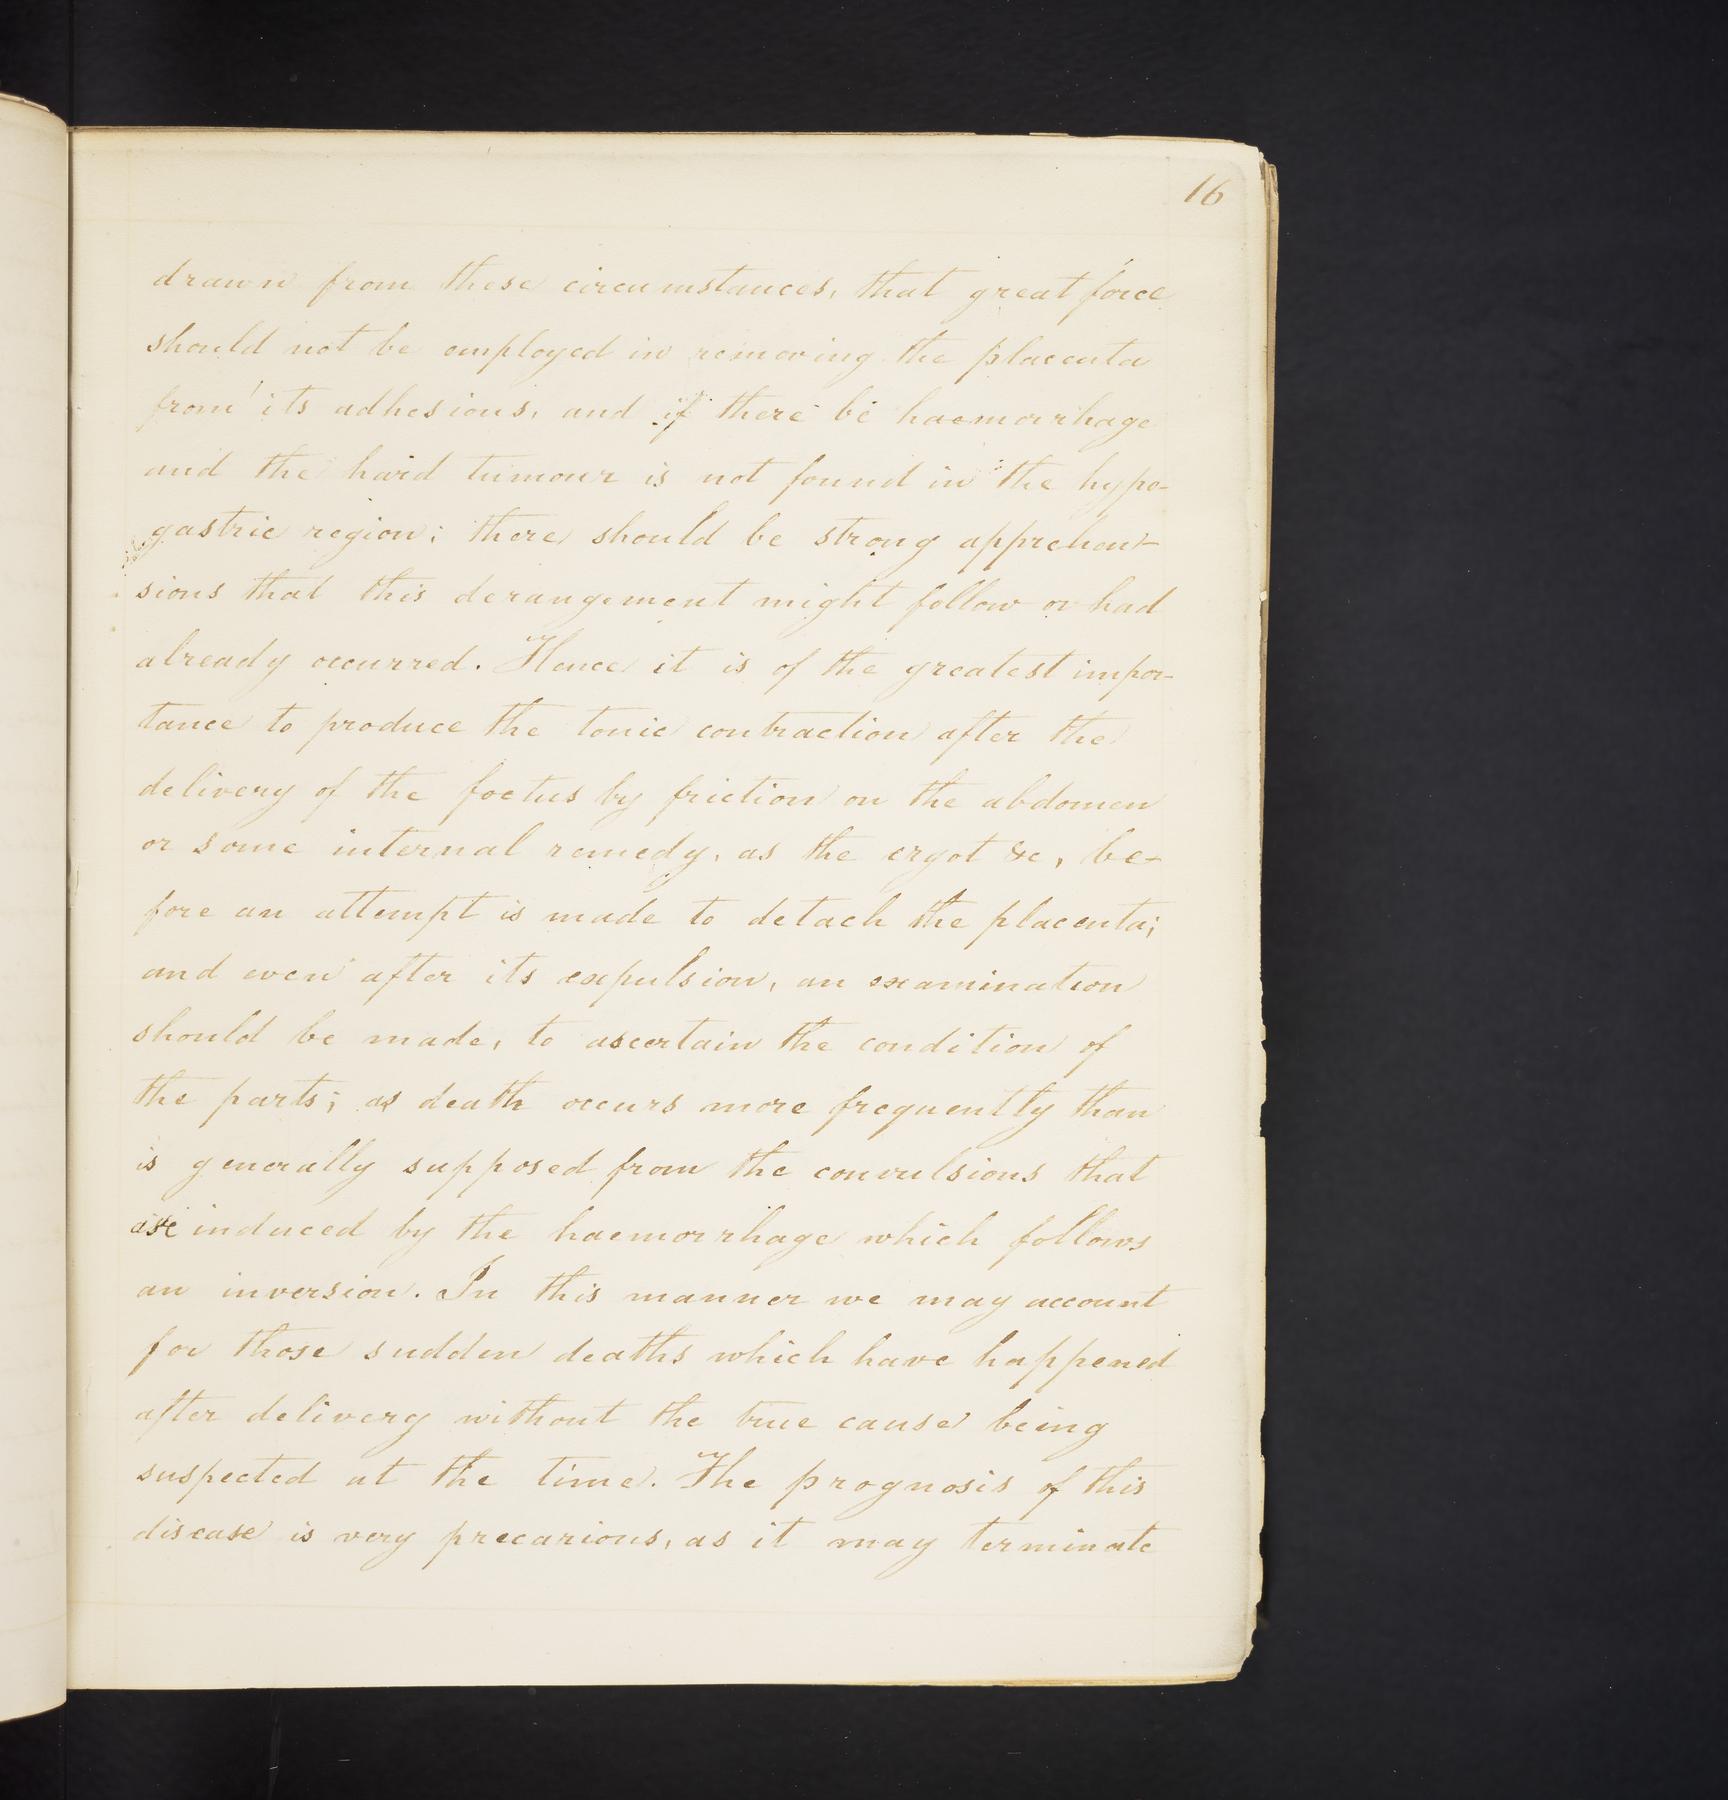 16
drawn from these circumstances, that great force
should not be employed in removing the placenta
from its adhesions, and if there be haemorrhage
and the hard tumour is not found in the hypo-
gastric region; there should be strong apprehen-
sions that this derangement might follow or had
already occurred. Hence it is of the greatest impor-
tance to produce the tonic contraction after the
delivery of the foetus by friction on the abdomen
or some internal remedy, as the ergot &c, be-
fore an attempt is made to detach the placenta;
and even after its expulsion, an examination
should be made, to ascertain the condition of
the parts; as death occurs more frequently than
is generally supposed from the convulsions that
are induced by the haemorrhage which follows
an inversion. In this manner we may account
for those sudden deaths which have happened
after delivery without the true cause being
suspected at the time. The prognosis of this
disease is very precarious, as it may terminate